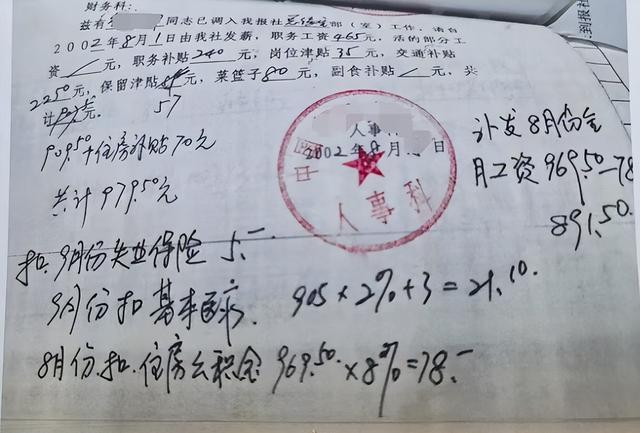 财务科:
兹有 同志已调入我报社 部(室)工作，请自
2002年8月1日由我社发薪，职务工资465元，活的部分工
资 元，职务补贴240元，岗位津贴35元，交通补贴
22.50元，保留津贴 元，菜篮子80元，副食补贴 元，共
计 元。
57
909.50+住房补贴70元
共计979.50元
人事
2002年8月 日
人事科
补发8月份全
月工资969.50-78
891.50.
扣.9月份失业保险 5.-
9月份扣基本医疗. 905×2%+3=21.10.
8月份.扣.住房公积金969.50.×8%=78.-
到报社